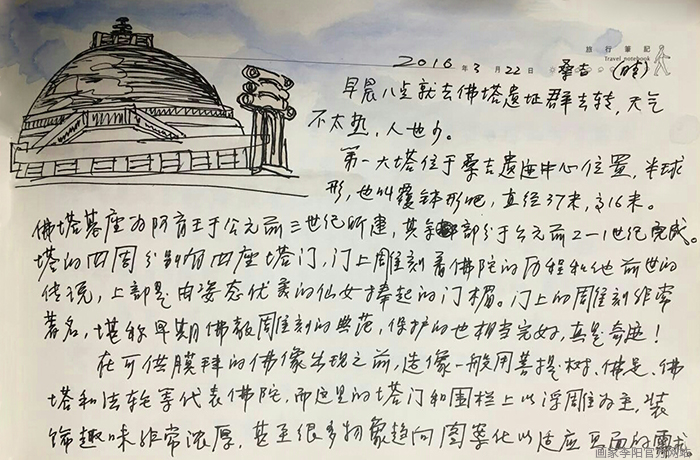 旅行筆記
Travel notebook
2016年3月22日 桑吉 (晴)
早晨八点就去佛塔遗址群去转，天气
不太热，人也少。
第一大塔位于桑吉遗迹中心位置，半球
形，也叫覆钵形吧，直径37米，高16米。
佛塔基座为阿育王于公元前三世纪所建，其余部分于公元前2—1世纪完成。
塔的四周分别有四座塔门，门上雕刻着佛陀的历程和他前世的
传说，上部是由姿态优美的仙女捧起的门楣。门上的雕刻非常
著名，堪称早期佛教雕刻的典范，保护的也相当完好，真是奇迹！
在可供膜拜的佛像出现之前，造像一般用菩提树、佛足、佛
塔和法轮等代表佛陀，而这里的塔门和围栏上以浮雕为主，装
饰趣味非常浓厚，甚至很多物象趋向图案化以适应页面的需求
画家李阳官方网站